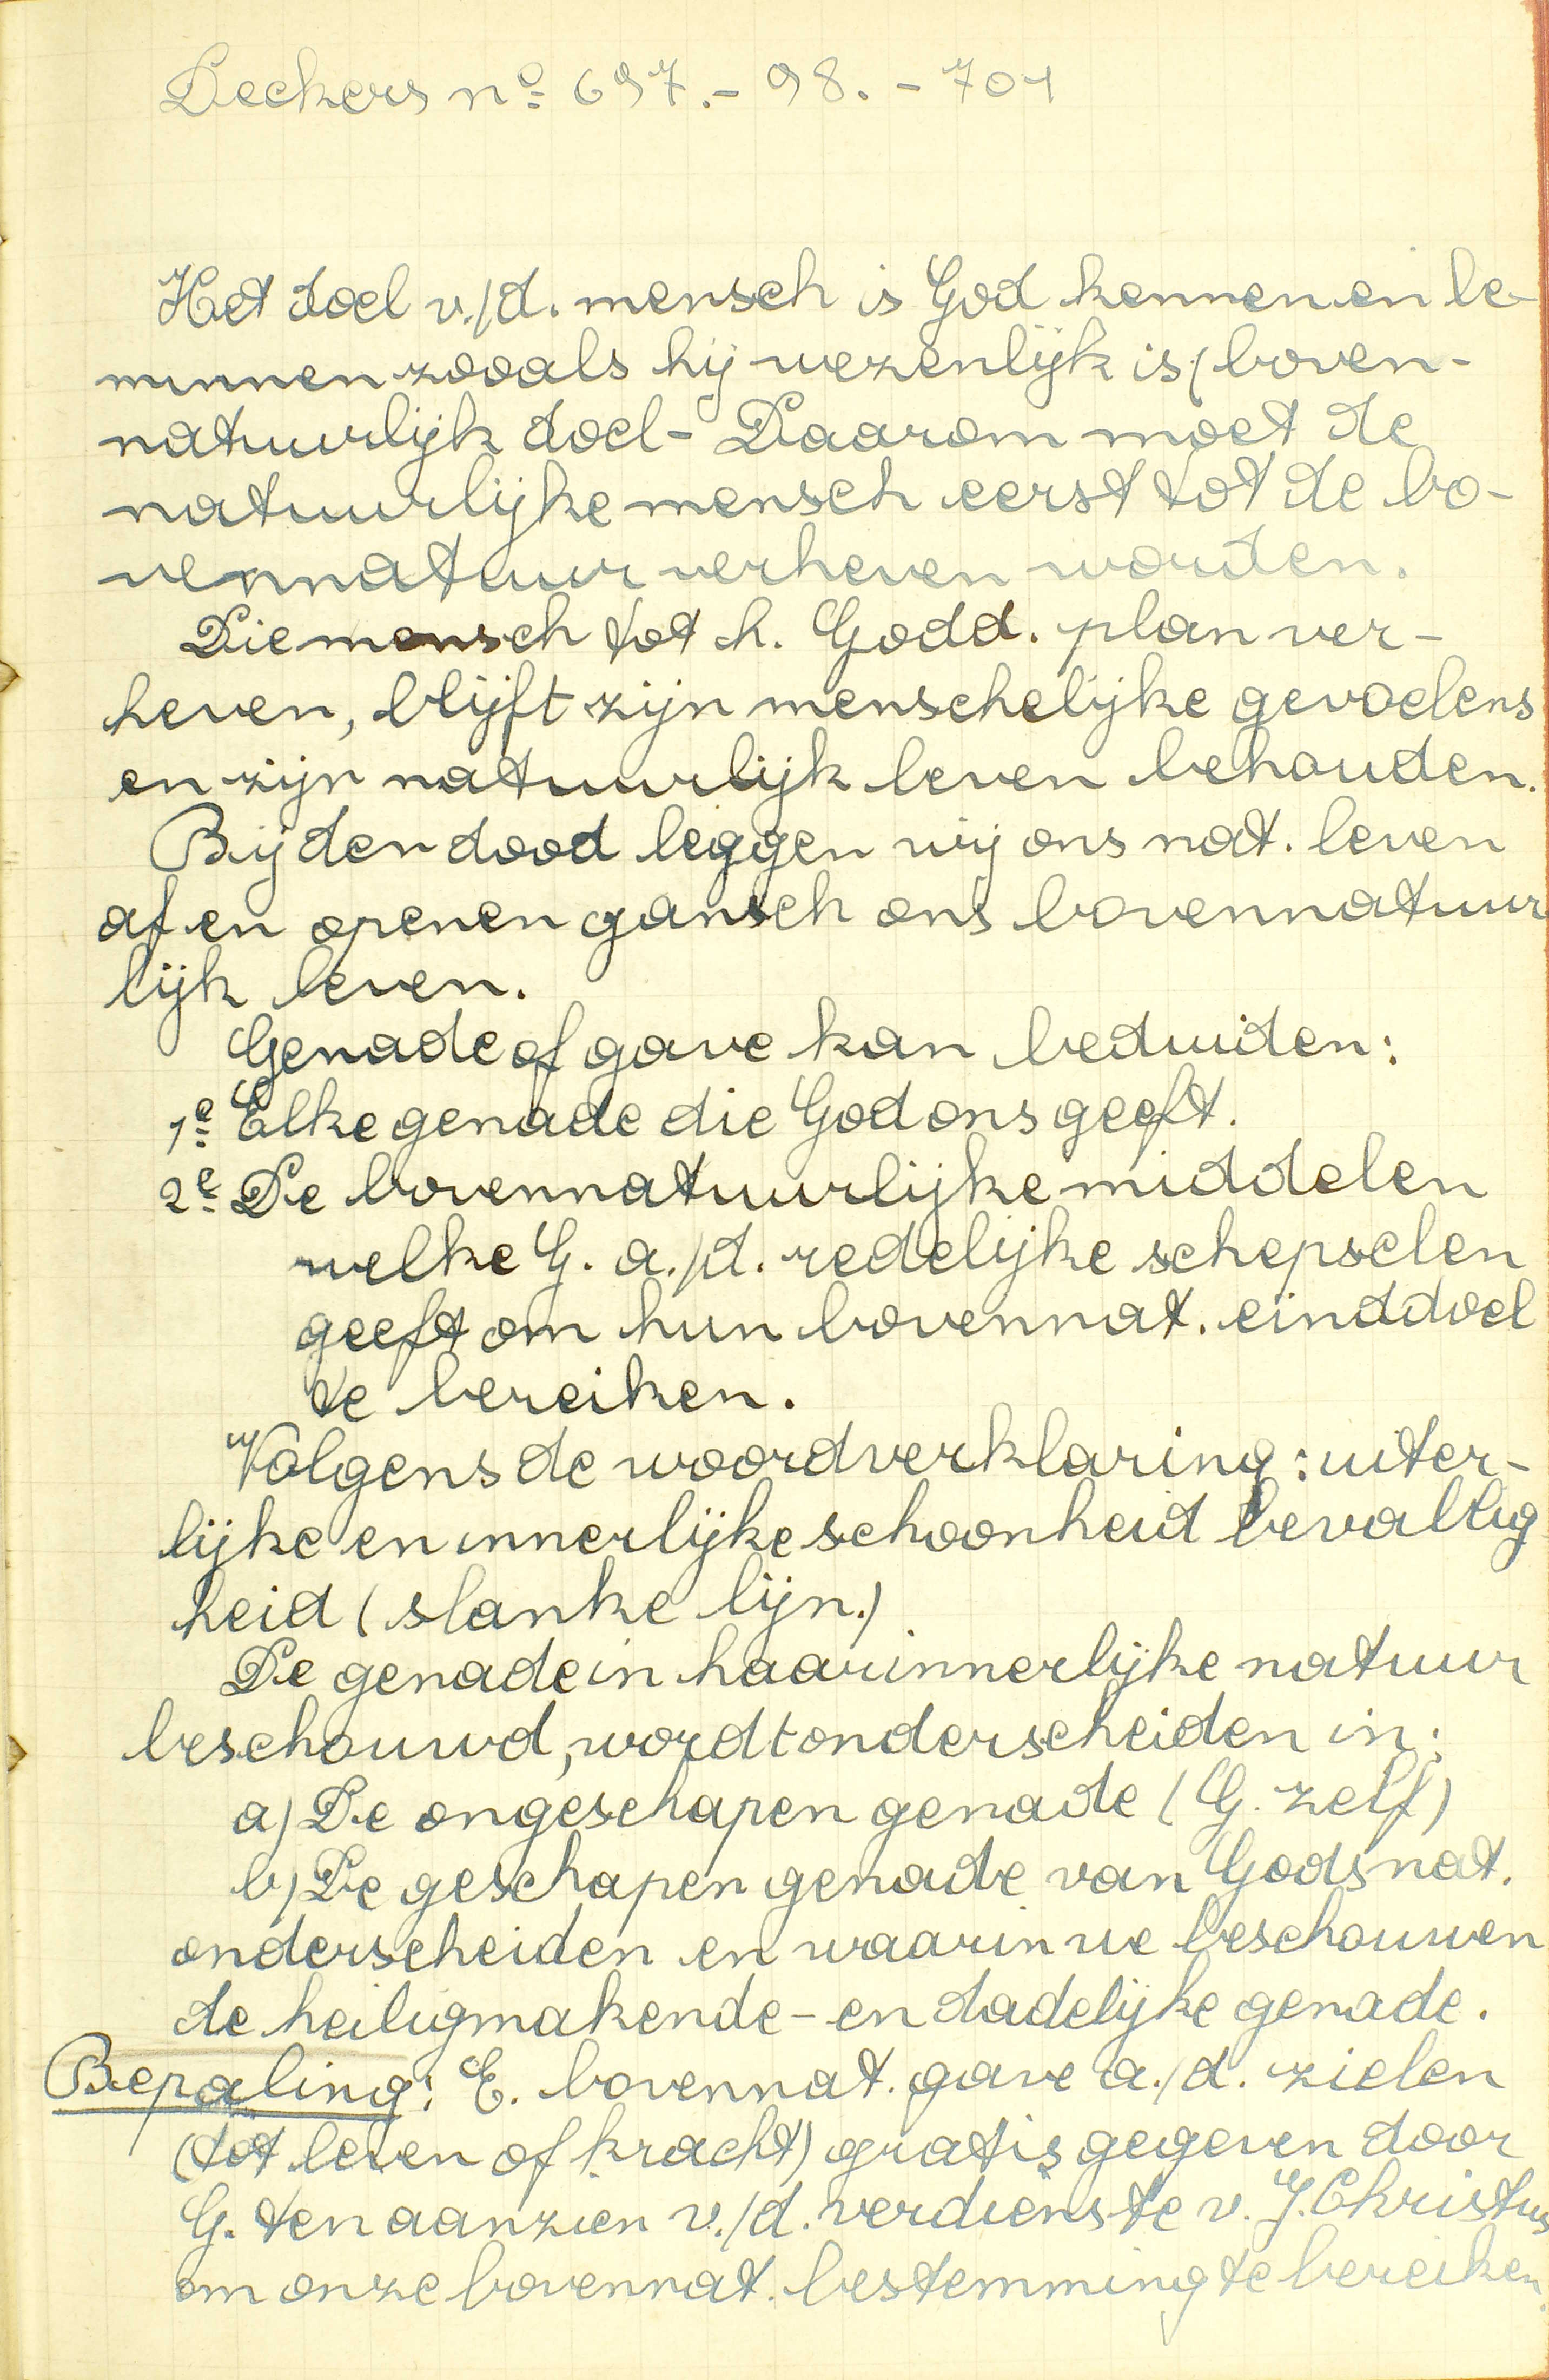 Deckers nº 697.- 98. - 701
Het doel v./d. mensch is God kennen en be-
minnen zooals hij wezenlijk is/boven-
natuurlijk doel - Daarom moet de
natuurlijke mensch eerst tot de bo-
vennatuur verheven worden.
Die mensch tot h. Godd. plan ver-
heven, blijft zijn menschelijke gevoelens
en zijn natuurlijk leven behouden.
Bij den dood leggen wij ons nat. leven
af en openen gansch ons bovennatuur
lijk leven.
Genade of gave kan beduiden:
1e Elke genade die God ons geeft.
2e De bovennatuurlijke middelen
welke G. a./d. redelijke schepselen
geeft om hun bovennat. einddoel
te bereiken.
Volgens de woordverklaring: uiter-
lijke en innerlijke schoonheid bevallig
heid (slanke lijn.)
De genade in haar innerlijke natuur
beschouwd, wordt onderscheiden in:
a) De ongeschapen genade (G. zelf)
b) De geschapen genade van Gods nat.
onderscheiden en waarin we beschouwen
de heiligmakende - en dadelijke genade.
Bepaling: E. bovennat. gave a./d. zielen
(tot leven of kracht) gratis gegeven door
G. ten aanzien v./d. verdienste v. J. Christus
om onze bovennat. bestemming te bereiken.